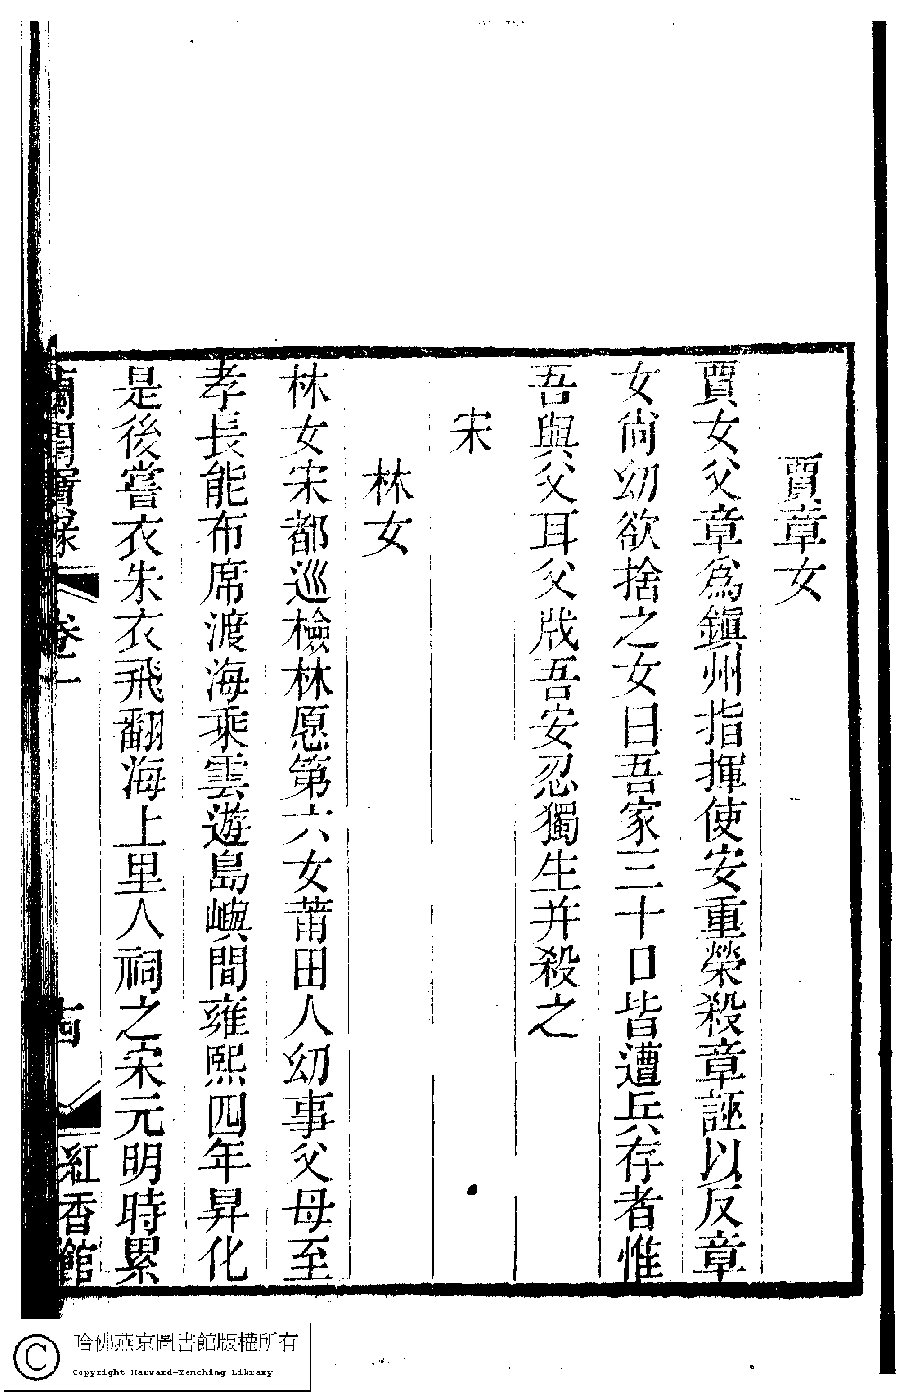 賈章女
賈女父章爲鎭州指揮使安重榮殺章誣以反章
女尙幼欲捨之女曰吾家三十口皆遭兵存者惟
吾與父耳父戕吾安忍獨生并殺之
宋
林女
林女宋都巡檢林愿第六女莆田人幼事父母至
孝長能布席渡海乘雲遊島嶼間雍熙四年昇化
是後嘗衣朱衣飛翻海上里人祠之宋元明時累
蘭閨寶錄 卷二 十四 紅香館
哈佛燕京圖書館版權所有
Copyright Harvard-Yenching Library